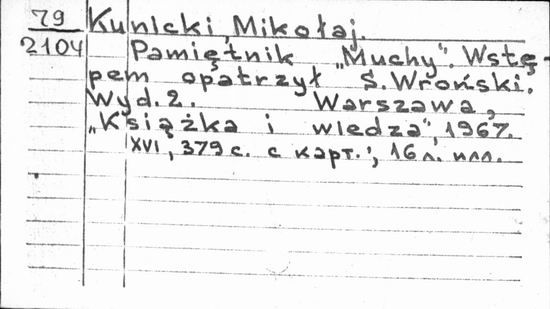 79
2104
Kunicki, Mikołaj.
Pamiętnik „Muchy". Wstę-
pem opatrzył S. Wroński.
Wyd. 2. Warszawa,
„Książka i wiedza", 1967.
XVI, 379 с. с карт.; 16 л. илл.